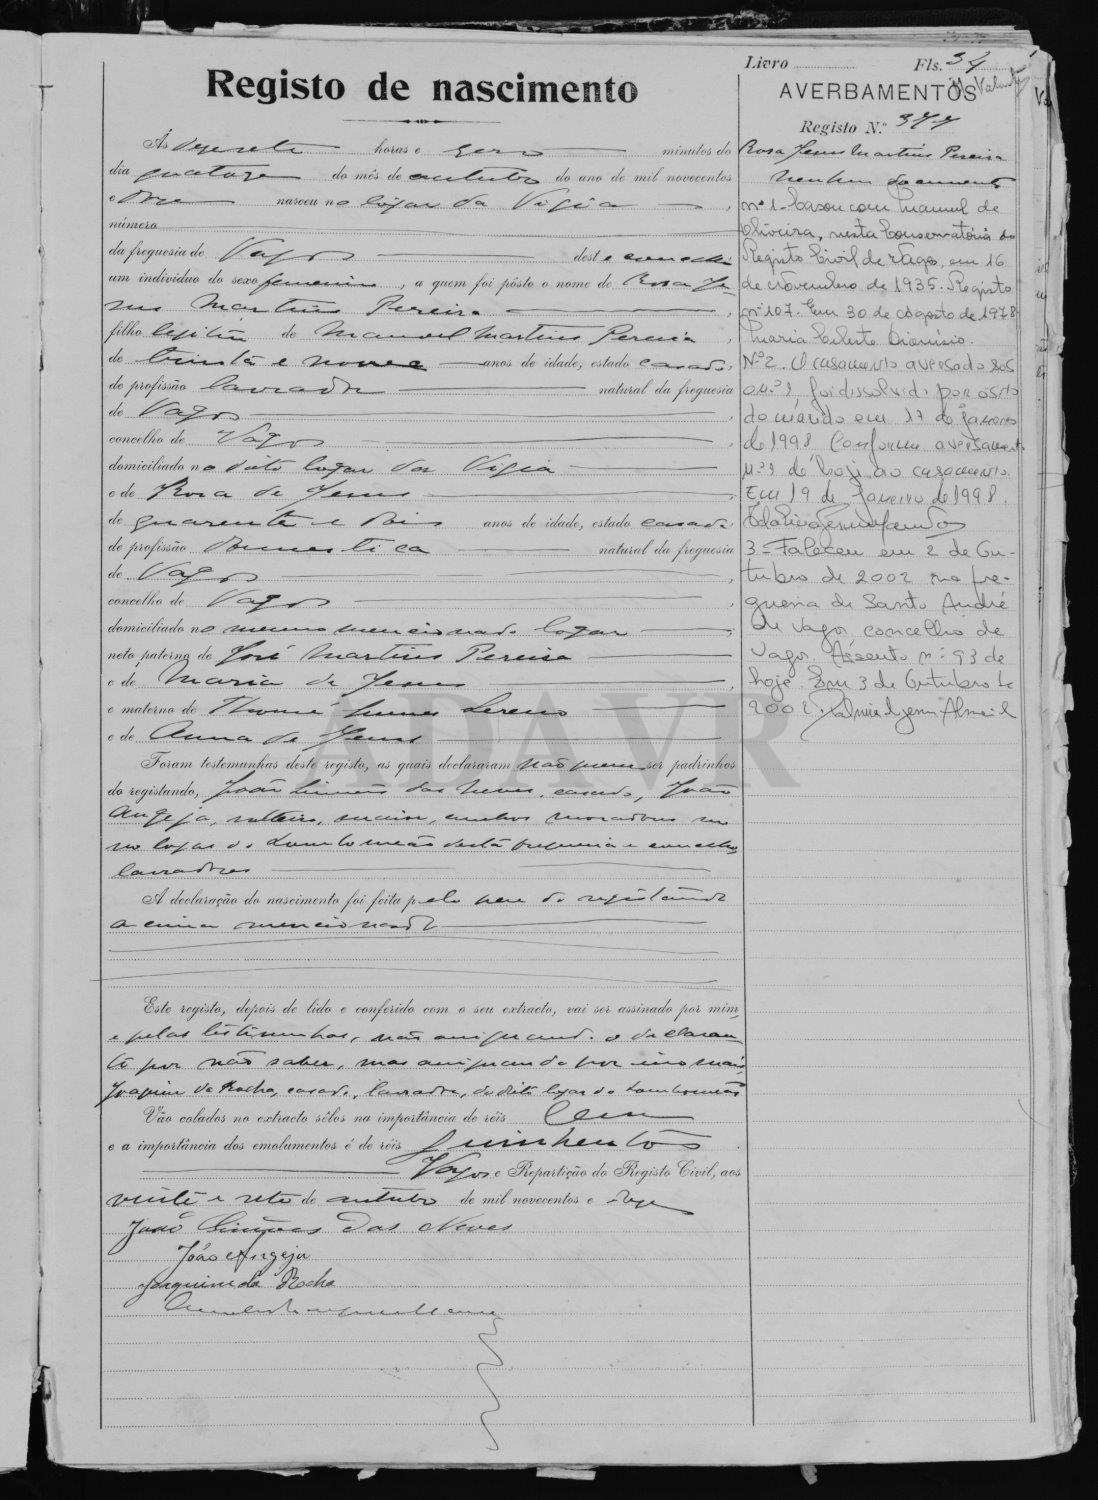 Registo de nascimento
Ás dezesete horas e zero minutos do
dia quatorze do mês de outubro do ano de mil novecentos
e onze nasceu no logar da Vigia,
número
da freguesia de Vagos deste concelho
um individuo do sexo femenino, a quem foi pôsto o nome de Rosa Je-
sus Martins Pereira,
filho legitim de Manoel Martins Pereira,
de trinta e nove anos de idade, estado casado,
de profissão lavrador natural da freguesia
de Vagos,
concelho de Vagos,
domiciliado no dito logar da Vigia
e de Rosa de Jesus,
de quarenta e dois anos de idade, estado casada,
de profissão domestica natural da freguesia
de Vagos,
concelho de Vagos,
domiciliado no mesmo mencionado logar,
neto paterno de José Martins Pereira
e de Maria de Jesus,
e materno de Thomé Nunes
e de Anna de Jesus
Foram testemunhas deste registo, as quais declararam não ser padrinhos
do registando, João Simões das Neves, casado, João
Angeja, solteiro, maior, ambos moradores
no logar do Lombomeão desta freguesia e concelho,
lavradores
A declaração do nascimento foi feita pelo do registando
acima mencionado
Este registo, depois de lido e conferido com o seu extracto, vai ser assinado por mim,
e pelas testimunhas, não assignando o declaran-
te por não saber, mas assignando por
Joaquim da Rocha, casado, lavrador, do dito logar do Lombomeão
Vão colados no extracto sêlos na importância de réis Cem
e a importância dos emolumentos é de réis Quinhentos
Vagos e Repartição do Registo Civil, aos
vinte e sete de outubro de mil novecentos e onze
João Simões das Neves
João Angeja
Joaquim da Rocha
Livro Fls. 34
AVERBAMENTOS
Registo N.º 377
Rosa Jesus Martins Pereira
Nenhum documento
nº 1 - Casou com Manuel de
Oliveira, nesta Conservatória do
Registo Civil de Vagos, em 16
de Novembro de 1935. Registo
nº 107. Em 30 de Agosto de 1978
Maria Celeste Dionisio.
Nº 2. O casamento averbado sob
o nº 1 foi dissolvido por óbito
do marido em 17 de Janeiro
de 1998, Conforme averbamento
nº 1 de hoje ao casamento.
Em 19 de Janeiro de 1998.
3 - Faleceu em 2 de Ou-
tubro de 2002 na fre-
guesia de Santo André
de Vagos concelho de
Vagos. Assento nº 93 de
hoje. Em 3 de Outubro de
2002.
ADAVR